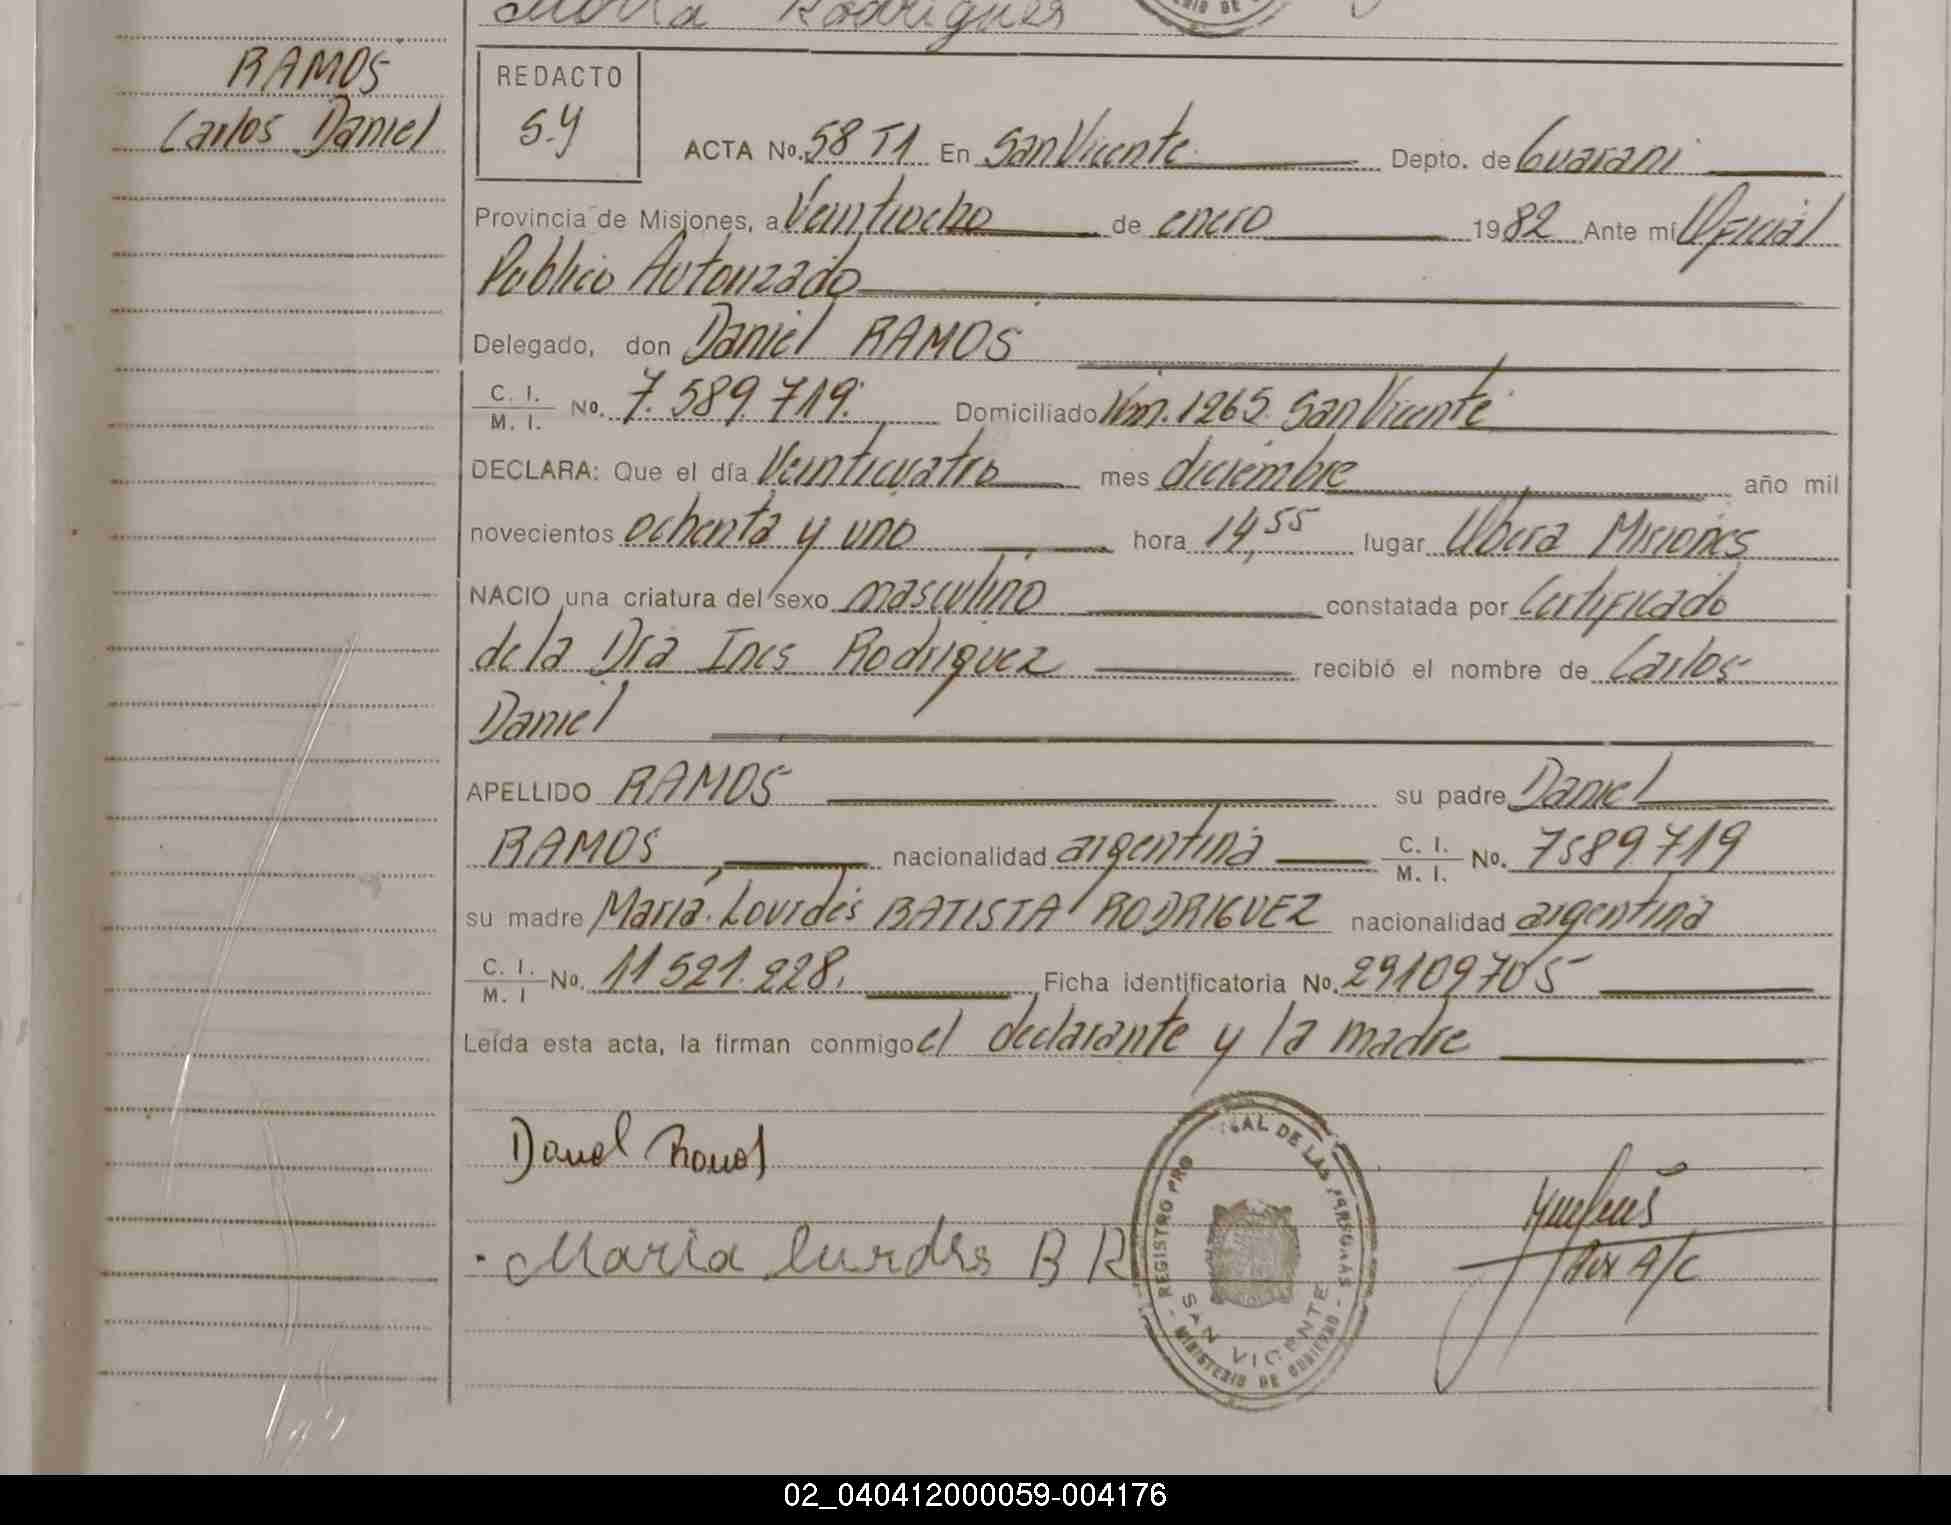 Rodrigues
RAMOS
Carlos Daniel
REDACTO
S.Y
ACTA No. 58 T1 En San Vicente Depto. de Guarani
Provincia de Misiones, a Veintiocho de enero 1982 Ante mí Oficial
Publico Autorizado
Delegado, don Daniel RAMOS
C. I.
M. I. No. 7.589.719. Domiciliado Km. 1265 San Vicente
DECLARA: Que el día Veinticuatro mes diciembre año mil
novecientos ochenta y uno hora 14,55 lugar Obera Misiones
NACIO una criatura del sexo masculino constatada por Certificado
de la Dra Ines Rodriguez recibió el nombre de Carlos
Daniel
APELLIDO RAMOS su padre Daniel
RAMOS nacionalidad argentina C. I.
M. I. No. 7589.719
su madre María Lourdes BATISTA RODRIGUEZ nacionalidad argentina
C. I.
M. I No. 11521.228. Ficha identificatoria No. 29109705
Leída esta acta, la firman conmigo el declarante y la madre
Daniel Ramos
Maria lurdes B R
REGISTRO PRO AL DE LAS PERSONAS
SAN VICENTE
MINISTERIO DE GOBIERNO
A/C
02_040412000059-004176